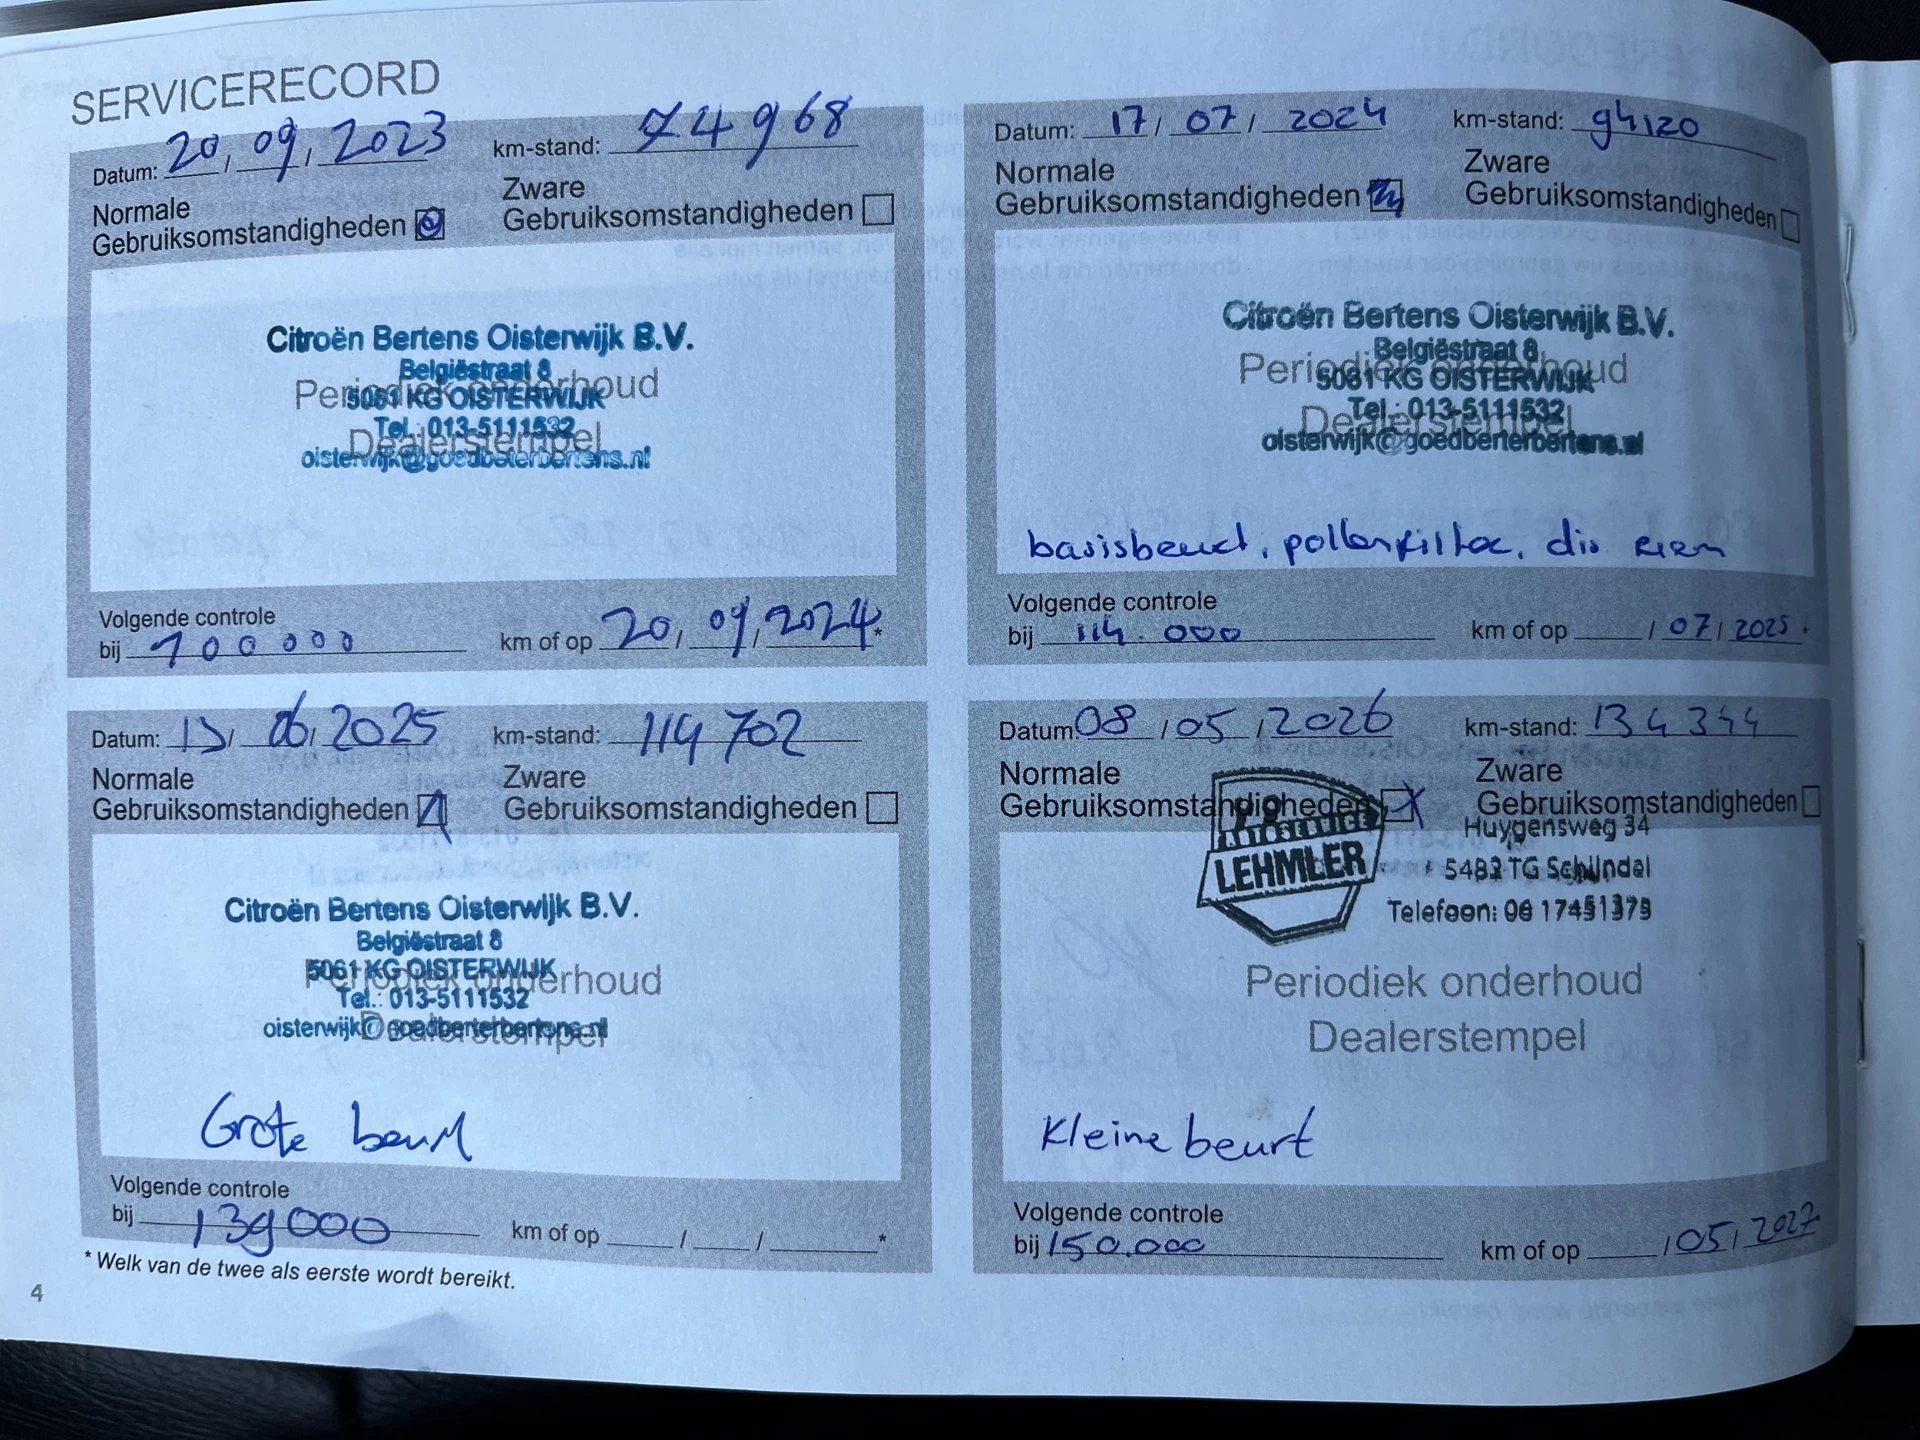 SERVICERECORD
Datum: 20, 09, 2023 km-stand: 74968
Normale
Gebruiksomstandigheden
Zware
Gebruiksomstandigheden
Citroën Bertens Oisterwijk B.V.
Belgiëstraat 8
5061 KG OISTERWIJK
Tel.: 013-5111532
oisterwijk@goedbeterbertens.nl
Periodiek onderhoud
Dealerstempel
Volgende controle
bij 100000 km of op 20, 09, 2024*
Datum: 17/ 07 / 2024 km-stand: 94120
Normale
Gebruiksomstandigheden
Zware
Gebruiksomstandigheden
Citroën Bertens Oisterwijk B.V.
Belgiëstraat 8
5061 KG OISTERWIJK
Tel.: 013-5111532
oisterwijk@goedberterbertens.nl
Periodiek onderhoud
Dealerstempel
basisbeurt, pollenfilter, dis riem
Volgende controle
bij 114.000 km of op / 07 / 2025.
Datum: / 06, 2025 km-stand: 114702
Normale
Gebruiksomstandigheden
Zware
Gebruiksomstandigheden
Citroën Bertens Oisterwijk B.V.
Belgiëstraat 8
5061 KG OISTERWIJK
Tel.: 013-5111532
oisterwijk@goedberterbertens.nl
Periodiek onderhoud
Dealerstempel
Grote beurt
Volgende controle
bij 139000 km of op / / *
Datum: 08 / 05 / 2026 km-stand: 134344
Normale
Gebruiksomstandigheden
Zware
Gebruiksomstandigheden
AUTOSERVICE
LEHMLER
Huygensweg 34
5482 TG Schijndel
Telefoon: 06 17451379
Periodiek onderhoud
Dealerstempel
Kleine beurt
Volgende controle
bij 150.000 km of op / 05 / 2027
* Welk van de twee als eerste wordt bereikt.
4